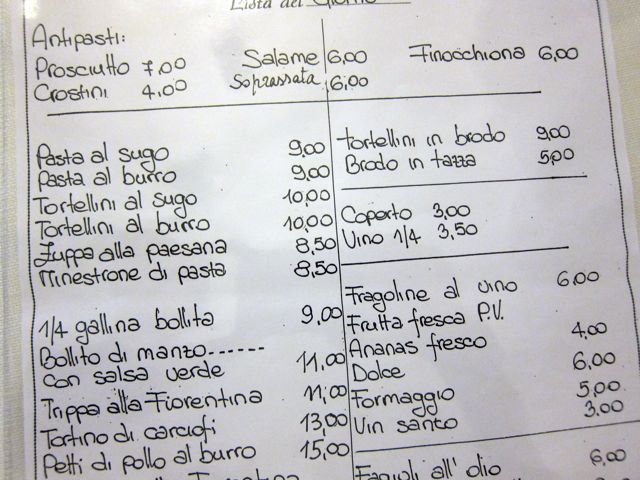 Lista del Giorno
Antipasti:
Prosciutto 7,00 Salame 6,00 Finocchiona 6,00
Crostini 4,00 Soprassata 6,00
Pasta al sugo 9,00
Pasta al burro 9,00
Tortellini al sugo 10,00
Tortellini al burro 10,00
Zuppa alla paesana 8,50
Minestrone di pasta 8,50
1/4 gallina bollita 9,00
Bollito di manzo------
con salsa verde 11,00
Trippa alla Fiorentina 11,00
Tortino di carciofi 13,00
Petti di pollo al burro 15,00
Tortellini in brodo 9,00
Brodo in tazza 5,00
Coperto 3,00
Vino 1/4 3,50
Fragoline al vino 6,00
Frutta fresca P.V.
Ananas fresco 4,00
Dolce 6,00
Formaggio 5,00
Vin santo 3,00
Fagioli all' olio 6,00